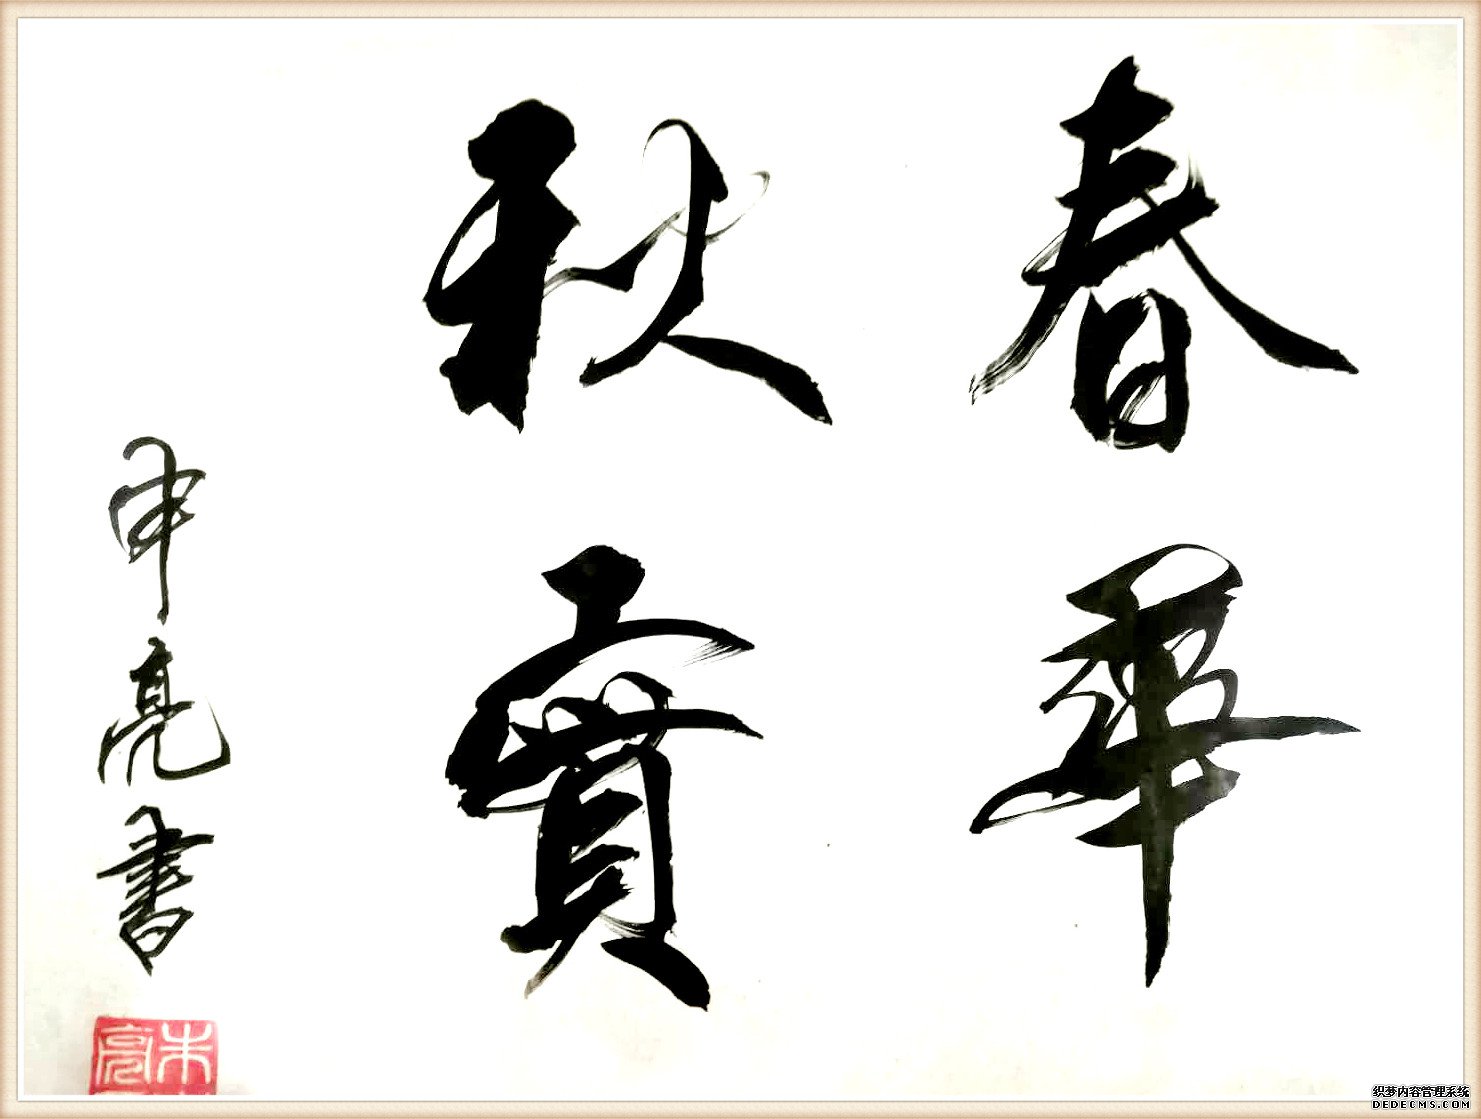 春華
秋實
申亮書
朱亮
织梦内容管理系统
DEDECMS.COM